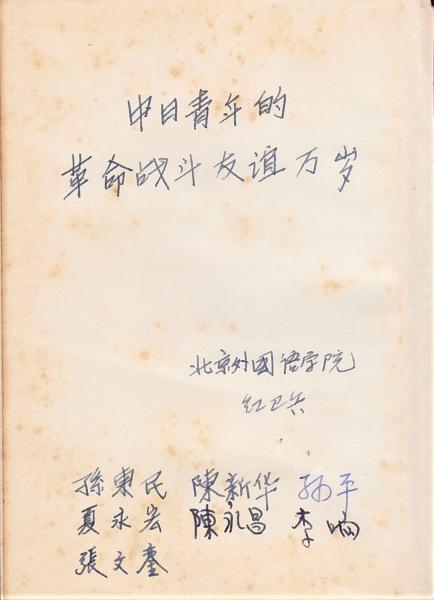 中日青年的
革命战斗友谊万岁
北京外國语学院
红卫兵
孫東民 陳新华 孙平
夏永宏 陳永昌 李响
張文奎